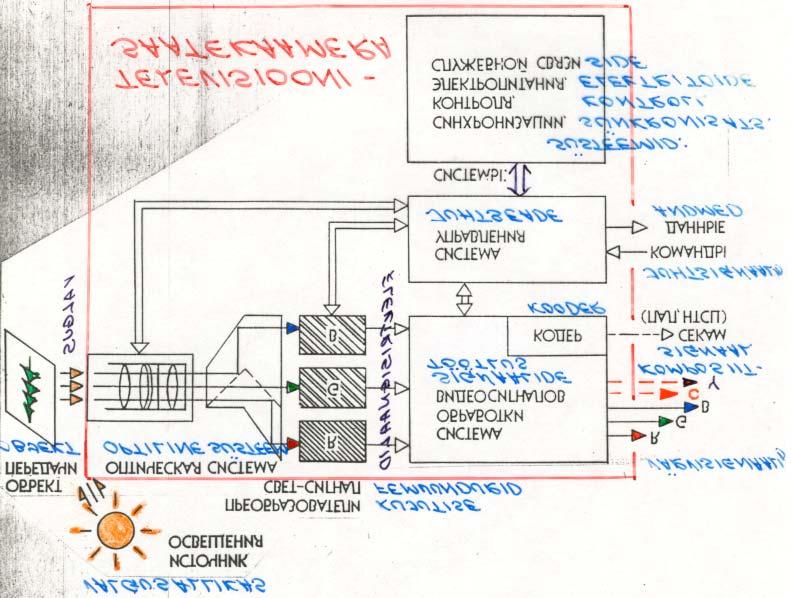 VALGUSALLIKAS
ИСТОЧНИК
ОСВЕЩЕНИЯ
KUJUTISE
REMUUNDURID
ПРЕОБРАЗОВАТЕЛИ
СВЕТ-СИГНАЛ
ОБЪЕКТ
ПЕРЕДАЧИ
OBJEKT
ОПТИЧЕСКАЯ СИСТЕМА
OPTILINE SÜSTEEM
VALGUS
R
G
B
ELEKTRISIGNAALID
СИСТЕМА
ОБРАБОТКИ
ВИДЕОСИГНАЛОВ
SIGNAALIDE
TÖÖTLUS
КОДЕР
KOODER
VÄRVISIGNAALID
R
G
B
C
Y
KOMPOSIIT-
SIGNAAL
СЕКАМ
(ПАЛ, НТСЦ)
JUHTSIGNAALID
КОМАНДЫ
ДАННЫЕ
ANDMED
СИСТЕМА
УПРАВЛЕНИЯ
JUHTSEADE
СИСТЕМЫ:
SÜSTEEMID:
СИНХРОНИЗАЦИИ, SÜNKRONISATS.
КОНТРОЛЯ, KONTROLI
ЭЛЕКТРОПИТАНИЯ, ELEKTRITOIDE
СЛУЖЕБНОЙ СВЯЗИ SIDE
TELEVISIOONI -
SAATEKAAMERA